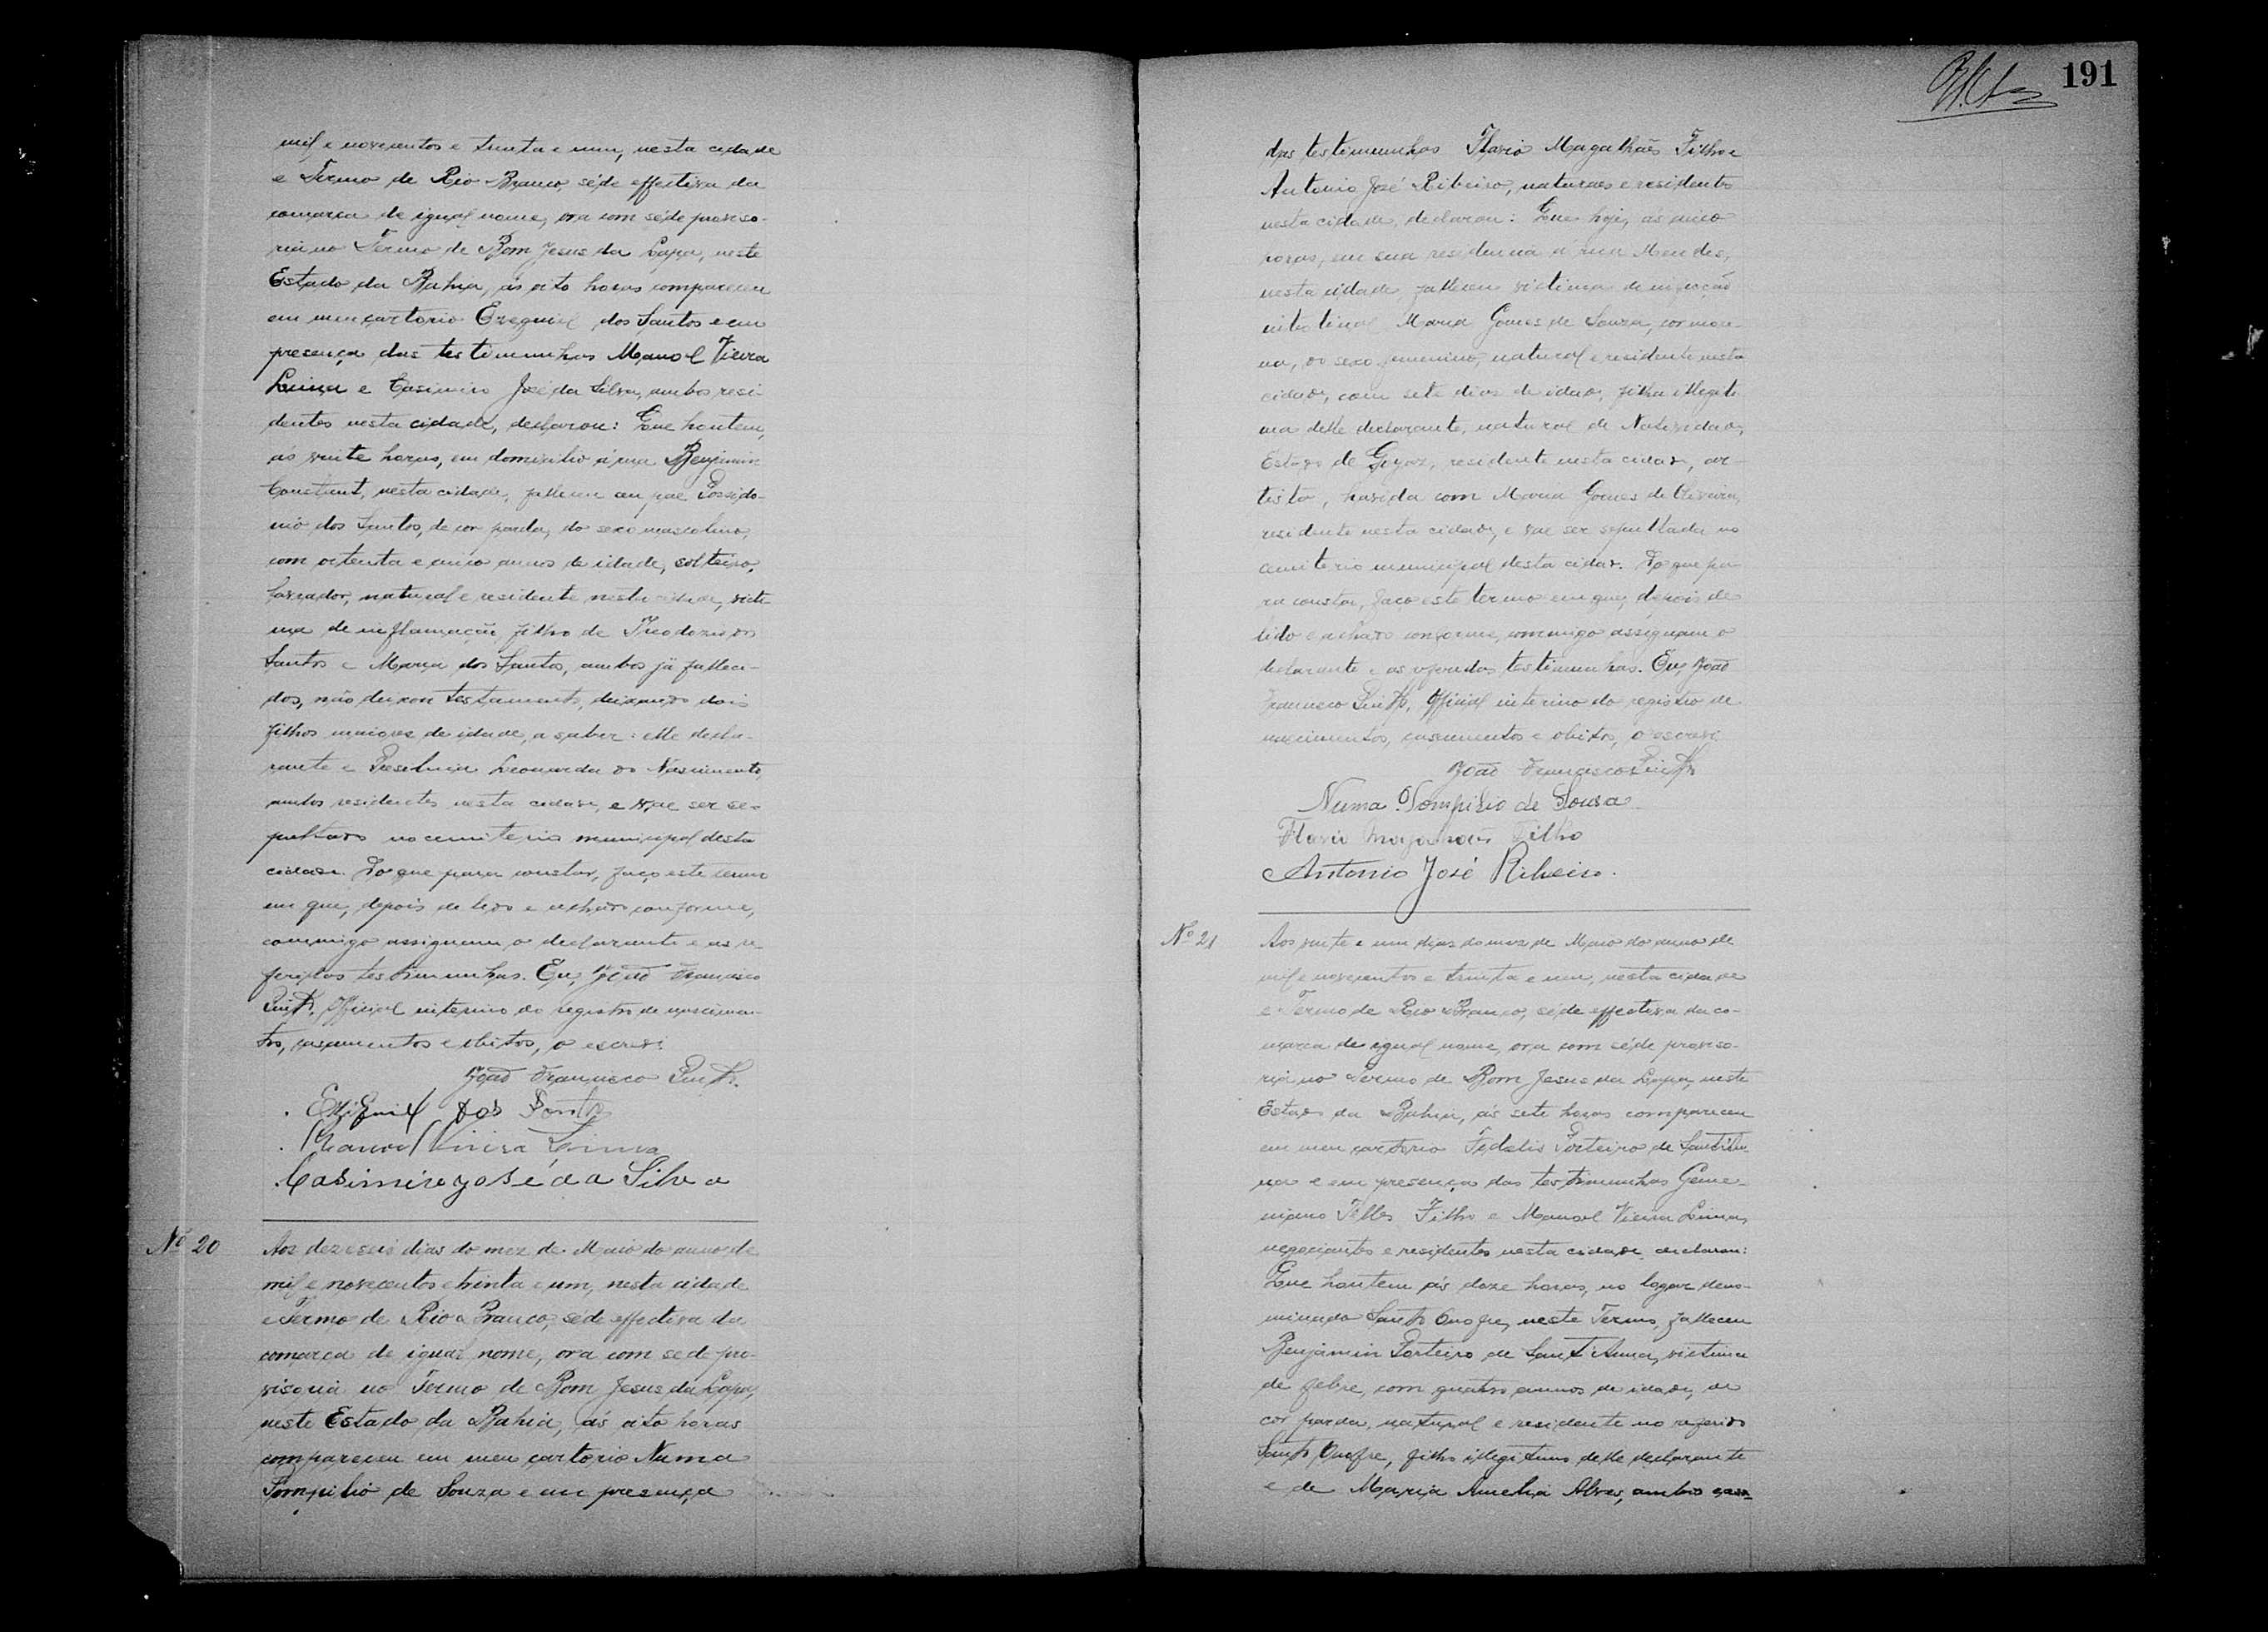 mil e novecentos e trinta e um, nesta cidade
e Termo de Rio Branco séde effectiva da
comarca de igual nome, ora com séde proviso-
ria no Termo de Bom Jesus da Lapa, neste
Estado da Bahia, ás oito horas compareceu
em meu cartorio Ezequiel dos Santos e em
presença das testimunhas Manoel Vieira
Lima e Casimiro José da Silva, ambos resi-
dentes nesta cidade, declarou: Que hontem,
ás vinte horas, em domicilio á rua Benjamin
Constant, nesta cidade, falleceu seu pae Possido-
nio dos Santos, de cor parda, do sexo masculino,
com oitenta e cinco annos de idade, solteiro,
lavrador, natural e residente nesta cidade, victi
ma de inflamação, filho de Theodozio dos
Santos e Maria dos Santos, ambos já falleci-
dos, não deixou testamento, deixando dois
filhos maiores de idade, a saber: elle decla-
rante e Leonarda do Nascimento,
ambos residentes nesta cidade, e vae ser se-
pultado no cemiterio municipal desta
cidade. Do que para constar, faço este termo
em que, depois de lido e achado conforme,
commigo assignam o declarante e as re-
feridas testimunhas. Eu, João Francisco
Official interino do registro de nascimen-
tos, casamentos e obitos, o escrevi.
João Francisco
Eziquiel dos Santos
Manoel Vieira Lima
Casimiro José da Silva
Nº 20
Aos dezeseis dias do mez de Maio do anno de
mil e novecentos e trinta e um, nesta cidade
e Termo de Rio Branco, séde effectiva da
comarca de igual nome, ora com sede pro-
visoria no Termo de Bom Jesus da Lapa,
neste Estado da Bahia, ás oito horas
compareceu em meu cartorio Numa
Pompilio de Souza e em presença
191
das testimunhas Flavio Magalhães Filho e
Antonio José Ribeiro, naturaes e residentes
nesta cidade, declarou: Que hoje, ás cinco
horas, em sua residencia á rua Mendes,
nesta cidade, falleceu victima de infecção
intestinal Maria Gomes de Souza, cor more-
na, do sexo feminino, natural e residente nesta
cidade, com sete dias de idade, filha illegiti
ma delle declarante, natural de Natividade,
Estado de Goyaz, residente nesta cidade, ar-
tista, havida com Maria Gomes de Oliveira,
residente nesta cidade, e vae ser sepultada no
cemiterio municipal desta cidade. Do que pa-
ra constar, faço este termo em que, depois de
lido e achado conforme, commigo assignam o
declarante e as referidas testimunhas. Eu, João
Francisco Official interino do registro de
nascimentos, casamentos e obitos, o escrevi.
João Francisco
Numa Pompilio de Sousa
Flavio Magalhães Filho
Antonio José Ribeiro.
Nº 21
Aos vinte e um dias do mez de Maio do anno de
mil e novecentos e trinta e um, nesta cidade
e Termo de Rio Branco, séde effectiva da co-
marca de egual nome, ora com séde proviso-
ria no Termo de Bom Jesus da Lapa, neste
Estado da Bahia, ás sete horas compareceu
em meu cartorio Fidelis Porteiro de
e em presença das testimunhas Geme-
niano Telles Filho e Manoel Vieira Lima,
negociantes e residentes nesta cidade declarou:
Que hontem ás doze horas, no logar deno-
minado Santo Onofre, neste Termo, falleceu
Benjamin Porteiro de Sant'Anna, victima
de febre, com quatro annos de idade, de
cor parda, natural e residente no referido
Santo Onofre, filho illegitimo delle declarante
e de Maria Amelia Alves, ambos